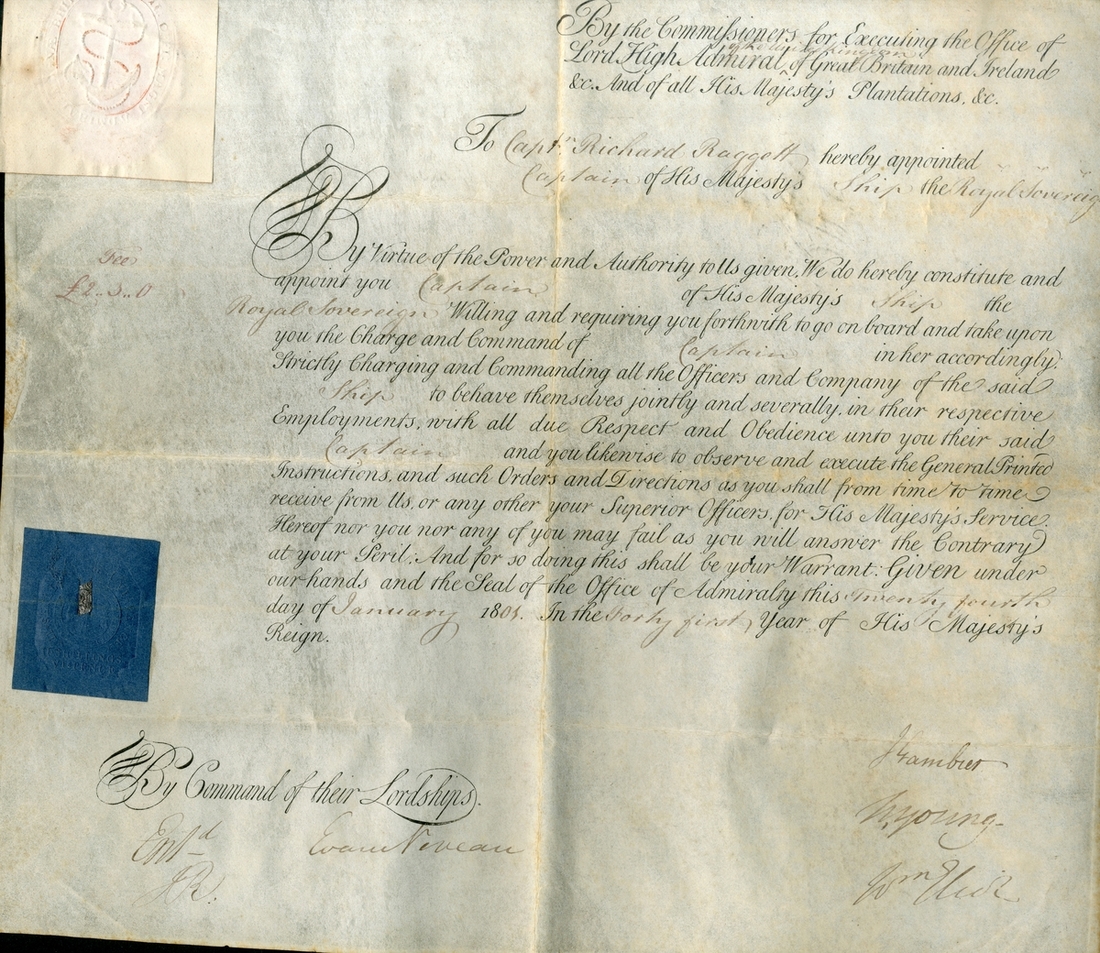 By the Commissioners for Executing the Office of
the United Kingdom
Lord High Admiral ^ of Great Britain and Ireland
&c. And of all His Majesty's Plantations, &c.
To Captn. Richard Raggett hereby appointed
Captain of His Majesty's Ship the Royal Sovereign
Fee
£2..3..0
By Virtue of the Power and Authority to Us given, We do hereby constitute and
appoint you Captain of His Majesty's Ship the
Royal Sovereign Willing and requiring you forthwith to go on board and take upon
you the Charge and Command of Captain in her accordingly:
Strictly Charging and Commanding all the Officers and Company of the said
Ship to behave themselves jointly and severally, in their respective
Employments, with all due Respect and Obedience unto you their said
Captain and you likewise to observe and execute the General Printed
Instructions, and such Orders and Directions as you shall from time to time
receive from Us, or any other your Superior Officers, for His Majesty's Service.
Hereof nor you nor any of you may fail as you will answer the Contrary
at your Peril. And for so doing this shall be your Warrant: Given under
our hands and the Seal of the Office of Admiralty this twenty fourth
day of January 1801. In the Forty first Year of His Majesty's
Reign.
By Command of their Lordships.
Entd
JR.
Evan Nepean
J Gambier
W. Young
Wm Eliot